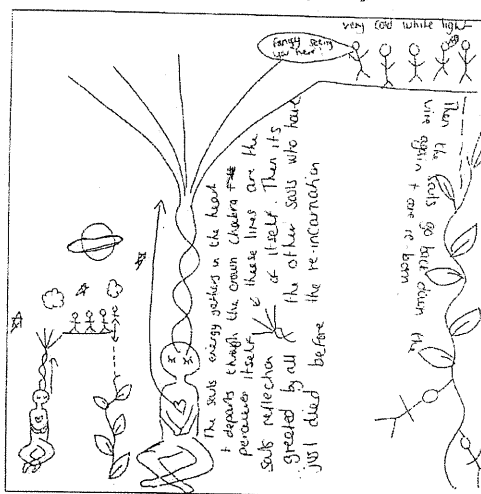 very cold white light
fancy seeing
you here!
The souls energy gathers in the heart
+ departs through the crown chakra
perceiver itself & these lines are the
souls reflection of itself. Then its
greeted by all the other souls who have
just died before the re-incarnation
Then the souls go back down the
vine again + are re-born